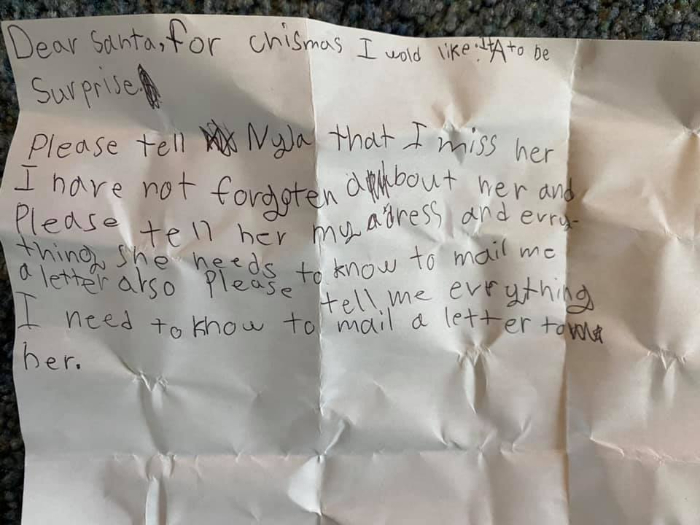 Dear Santa, for chismas I wold like to be
Surprise
Please tell Nyla that I miss her
I have not forgoten about her and
Please tell her my adress and evry-
thing she needs to know to mail me
a letter also Please tell me evrything
I need to know to mail a letter to
her.